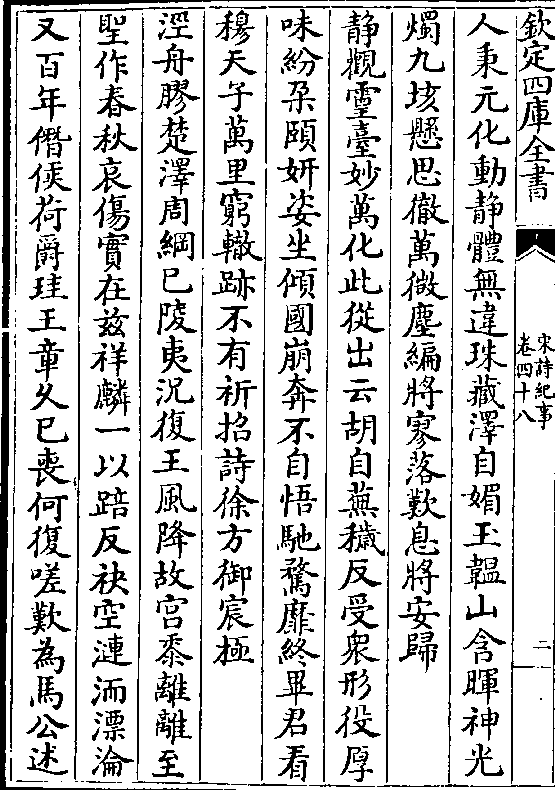 欽定四庫全書
宋詩紀事
卷四十八
二
人秉元化動静體無違珠藏澤自媚玉韞山含暉神光
燭九垓懸思徹萬微塵編將寥落歎息將安歸
静觀靈臺妙萬化此從出云胡自蕪穢反受衆形役厚
味紛朶頤妍姿坐傾國崩奔不自悟馳騖靡終畢君看
穆天子萬里窮轍跡不有祈招詩徐方御宸極
涇舟膠楚澤周綱已陵夷況復王風降故宫黍離離至
聖作春秋哀傷實在兹祥麟一以踣反袂空漣洏漂淪
又百年僭侯荷爵珪王章久已喪何復嗟歎為馬公述